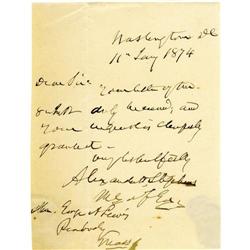 Washington DC
11th Jany 1874
Dear Sir Your letter of the
duly received and
your request is cheerfully
granted
Very respectfully
Alexander H Stephens
M C of Ga
Hon. Lewis
Peabody
Mass